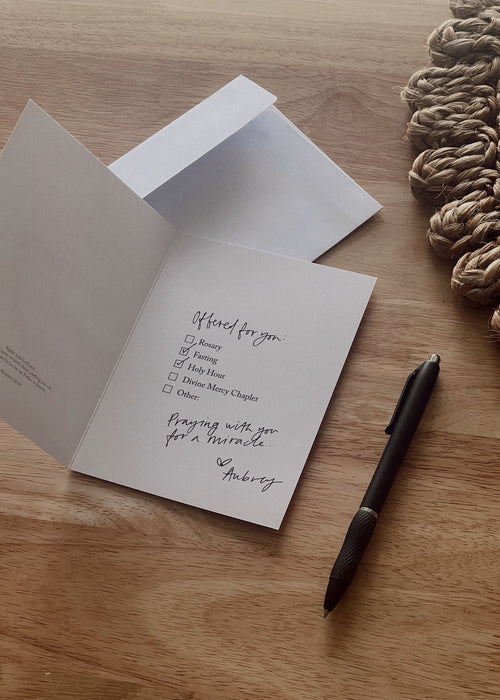 Offered for you:
Rosary
Fasting
Holy Hour
Divine Mercy Chaplet
Other:
Praying with you
for a miracle.
Aubrey